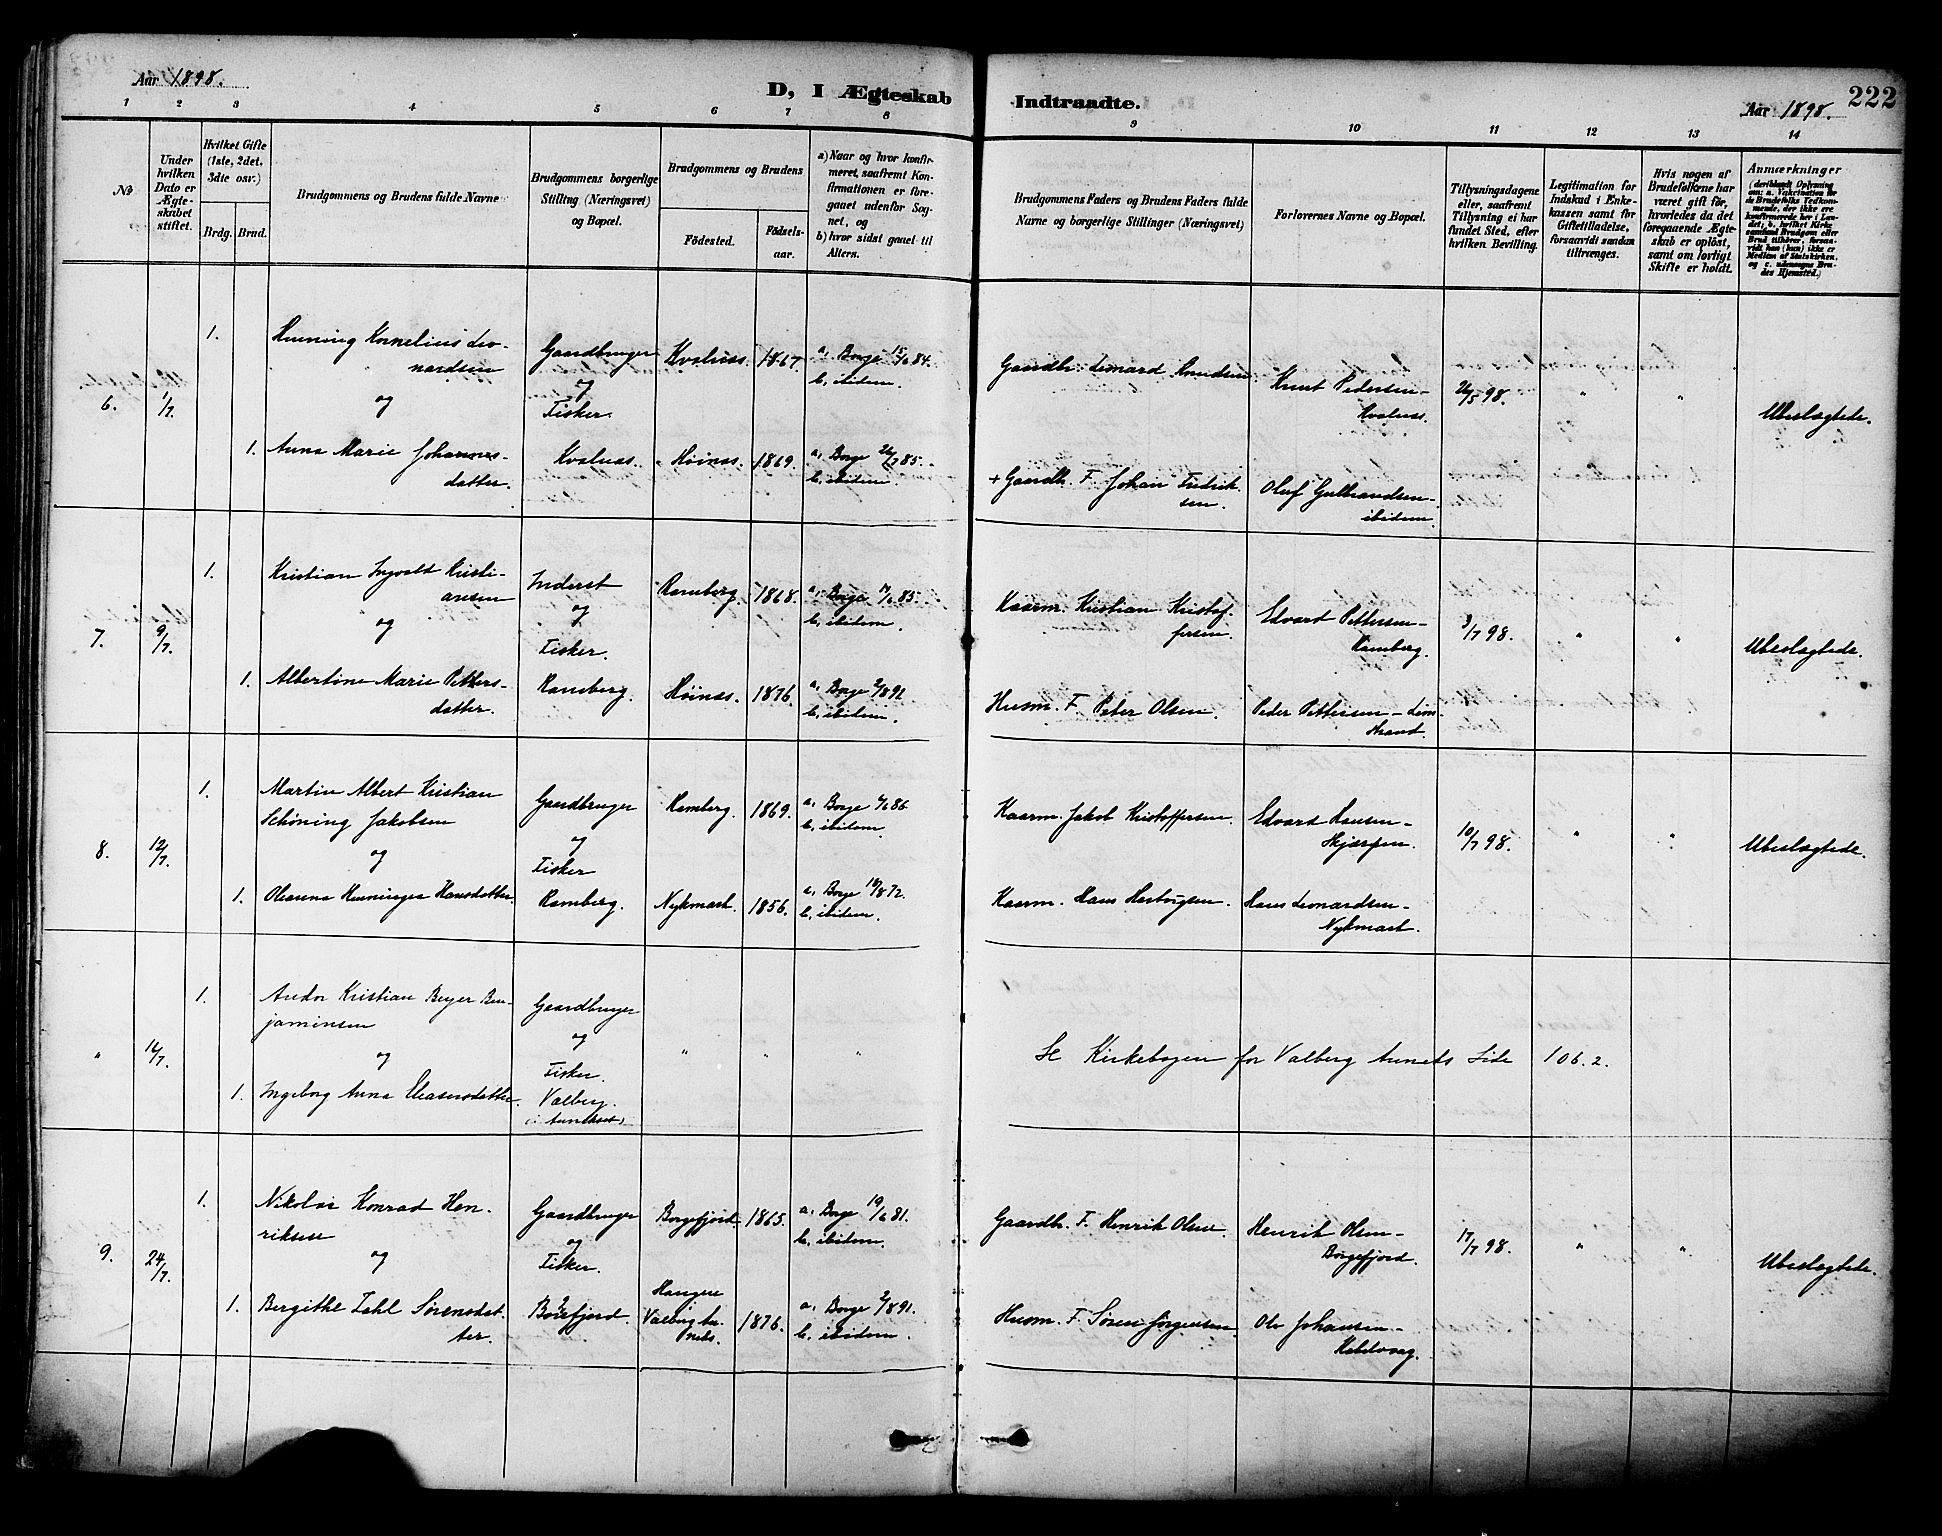 Aar 1898.
D, I Ægteskab Indtraadte.
Aar 1898.
222
1 2 3 4 5 6 7 8 9 10 11 12 13 14
No
Under hvilken Dato er Ægteskabet stiftet.
Hvilket Gifte (1ste, 2det, 3die osv.)
Brdg. Brud.
Brudgommens og Brudens fulde Navne
Brudgommens borgerlige Stilling (Næringsvei) og Bopæl.
Brudgommens og Brudens
Födested.
Födsels-aar.
a) Naar og hvor konfirmeret, saafremt Konfirmationen er foregaaet udenfor Sognet, og
b) hvor sidst gaaet til Alters.
Brudgommens Faders og Brudens Faders fulde Navne og borgerlige Stillinger (Næringsvei)
Forlovernes Navne og Bopæl.
Tillysningsdagene eller, saafremt Tillysning ei har fundet Sted, efter hvilken Bevilling.
Legitimation for Indskud i Enkekassen samt for Giftetilladelse, forsaavidt saadan tiltrænges.
Hvis nogen af Brudefolkene har været gift för, hvorledes da det foregaaende Ægteskab er oplöst, samt om lovligt Skifte er holdt.
Anmærkninger
(deriblandt Oplysning om: a. Vakcination for de Brudefolks Vedkommende, der ikke ere konfirmerede her i Landet; b. hvilket Kirkesamfund Brudgom eller Brud tilhörer, forsaavidt han (hun) ikke er Medlem af Statskirken, og c. udensogns Brudes Hjemsted.)
6. 1/7.
1. Henning Kornelius Leonardsen
og
Gaardbruger og Fisker.
Kvalnæs. 1867. a, Borge 15/6 84. b, ibidem.
Gaardb. Leonard Knudsen
Knut Pedersen - Kvalnæs.
26/5 98. " " Ubeslægtede.
1. Anna Marie Johannesdatter. Kvalnæs. Höinæs. 1869. a, Borge 26/7 85. b, ibidem.
+ Gaardb. F. Johan Fredriksen.
Oluf Gulbrandsen - ibidem.
7. 9/7.
1. Kristian Ingvald Kristiansen
og
Inderst og Fisker.
Ramberg. 1868. a, Borge 14/6 85. b, ibidem.
Kaarm. Kristian Kristoffersen.
Edvard Pettersen - Ramberg.
3/7 98. " " Ubeslægtede.
1. Albertine Marie Pettersdatter. Ramberg. Höinæs. 1876. a, Borge 2/8 91. b, ibidem.
Husm. F. Peter Olsen.
Peder Pettersen - Limstrand.
8. 12/7.
1. Martin Albert Kristian Schöning Jakobsen
og
Gaardbruger og Fisker
Ramberg. 1869. a, Borge 6/6 86 b, ibidem.
Kaarm. Jakob Kristoffersen.
Edvard Hansen - Skjærpen.
10/7 98. " " Ubeslægtede.
1. Oleanna Henninga Hansdatter. Ramberg. Nykmark. 1856. a, Borge 18/8 72. b, ibidem.
Kaarm. Hans Hartvigsen.
Hans Leonardsen - Nykmark.
" 16/7.
1. Andor Kristian Beyer Benjaminsen
og
Gaardbruger og Fisker.
" " "
Se Kirkebogen for Valberg Annexs Side 106. 2.
1. Ingeborg Anna Eleasersdatter. Valberg. (: Annekset:)
9. 24/7.
1. Nikolai Konrad Henriksen
og
Gaardbruger og Fisker.
Borgefjord. 1865. a, Borge 19/6 81. b, ibidem.
Gaardb. F. Henrik Olsen
Henrik Olsen - Borgefjord.
17/7 98. " " Ubeslægtede.
1. Bergithe Dahl Sörensdatter. Borgefjord. Haugen Valberg Annets. 1876. a, Borge 2/8 91. b, ibidem.
Husm. F. Sören Jörgensen.
Ole Johansen - Kabelvaag.